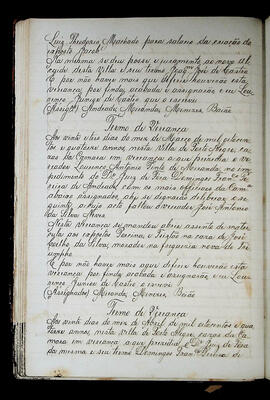 Luiz Frederico Machado para salario da criação do
exposto Jacob.
Na mesma se deu posse e juramento ao novo Al
caide desta Villa e seu termo João José de Castro
E por não haver mais que deferir houverão esta
vereança por finda, acabada e assignarão e eu Lou
renço Junior de Castro que o escrevi
(Assignos) Andrade, Miranda, Menezes, Barão
Termo de Vereança
Aos vinte e seis dias do mez de Março de mil oitocen
tos e quatorze annos nesta Villa de Porto Alegre, ca
sas da Camara em vereança a que presidia o ve
reador Lourenço Antonio Forte de Miranda, no im
pedimento do Dr. Juiz de Fóra Domingos Franco Pe
reira de Andrade, com os mais officiaes da Camara
abaixo assignados, ahi se dignarão deliberar o se
guinte; a cujo acto faltou o vereador José Antonio
da Silva Neves
Nesta vereança se mandou abrir assento de matri
cula aos expostos
Coelho da Silva, morador na freguezia nova do Tri
umpho
E por não haver mais que deferir houverão esta
vereança por finda, acabada e assignarão e eu Lou
renço Junior de Castro o escrevi
(Assignados) Miranda, Menezes, Barão
Termo de Vereança
Aos vinte dias do mez de Abril de mil oitocentos e qua
torze annos, nesta villa de Porto Alegre, casas da Ca
mara em vereança, a que presidia o Dr. Juiz de Fora
da mesma e seu termo Domingos Franco Pereira de